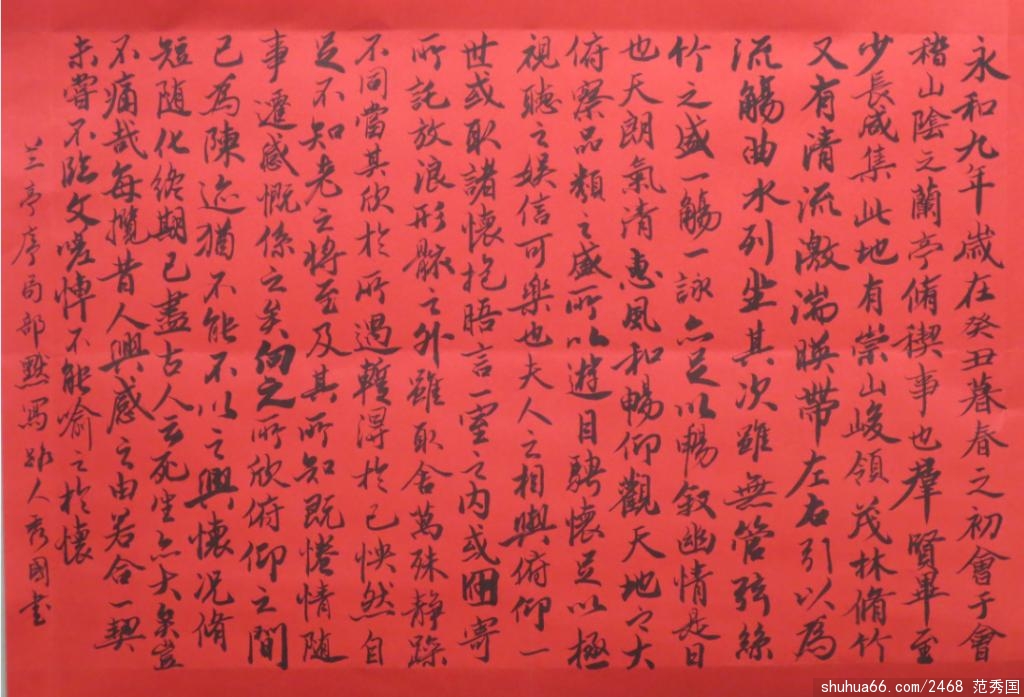 永和九年歲在癸丑暮春之初會于會
稽山陰之蘭亭脩稧事也羣賢畢至
少長咸集此地有崇山峻領茂林脩竹
又有清流激湍暎帶左右引以為
流觴曲水列坐其次雖無管弦絲
竹之盛一觴一詠亦足以暢叙幽情是日
也天朗氣清惠風和暢仰觀天地之大
俯察品類之盛所以遊目騁懷足以極
視聽之娛信可樂也夫人之相與俯仰一
世或取諸懷抱晤言一室之內或因寄
所託放浪形骸之外雖取舍萬殊靜躁
不同當其欣於所遇暫得於己怏然自
足不知老之將至及其所知既惓情隨
事遷感慨係之矣向之所欣俯仰之間
已為陳迹猶不能不以之興懷況脩
短隨化終期已盡古人云死生亦大矣豈
不痛哉每攬昔人興感之由若合一契
未嘗不臨文嗟悼不能喻之於懷
兰亭序局部默寫人秀國書
shuhua66.com/2468 范秀国